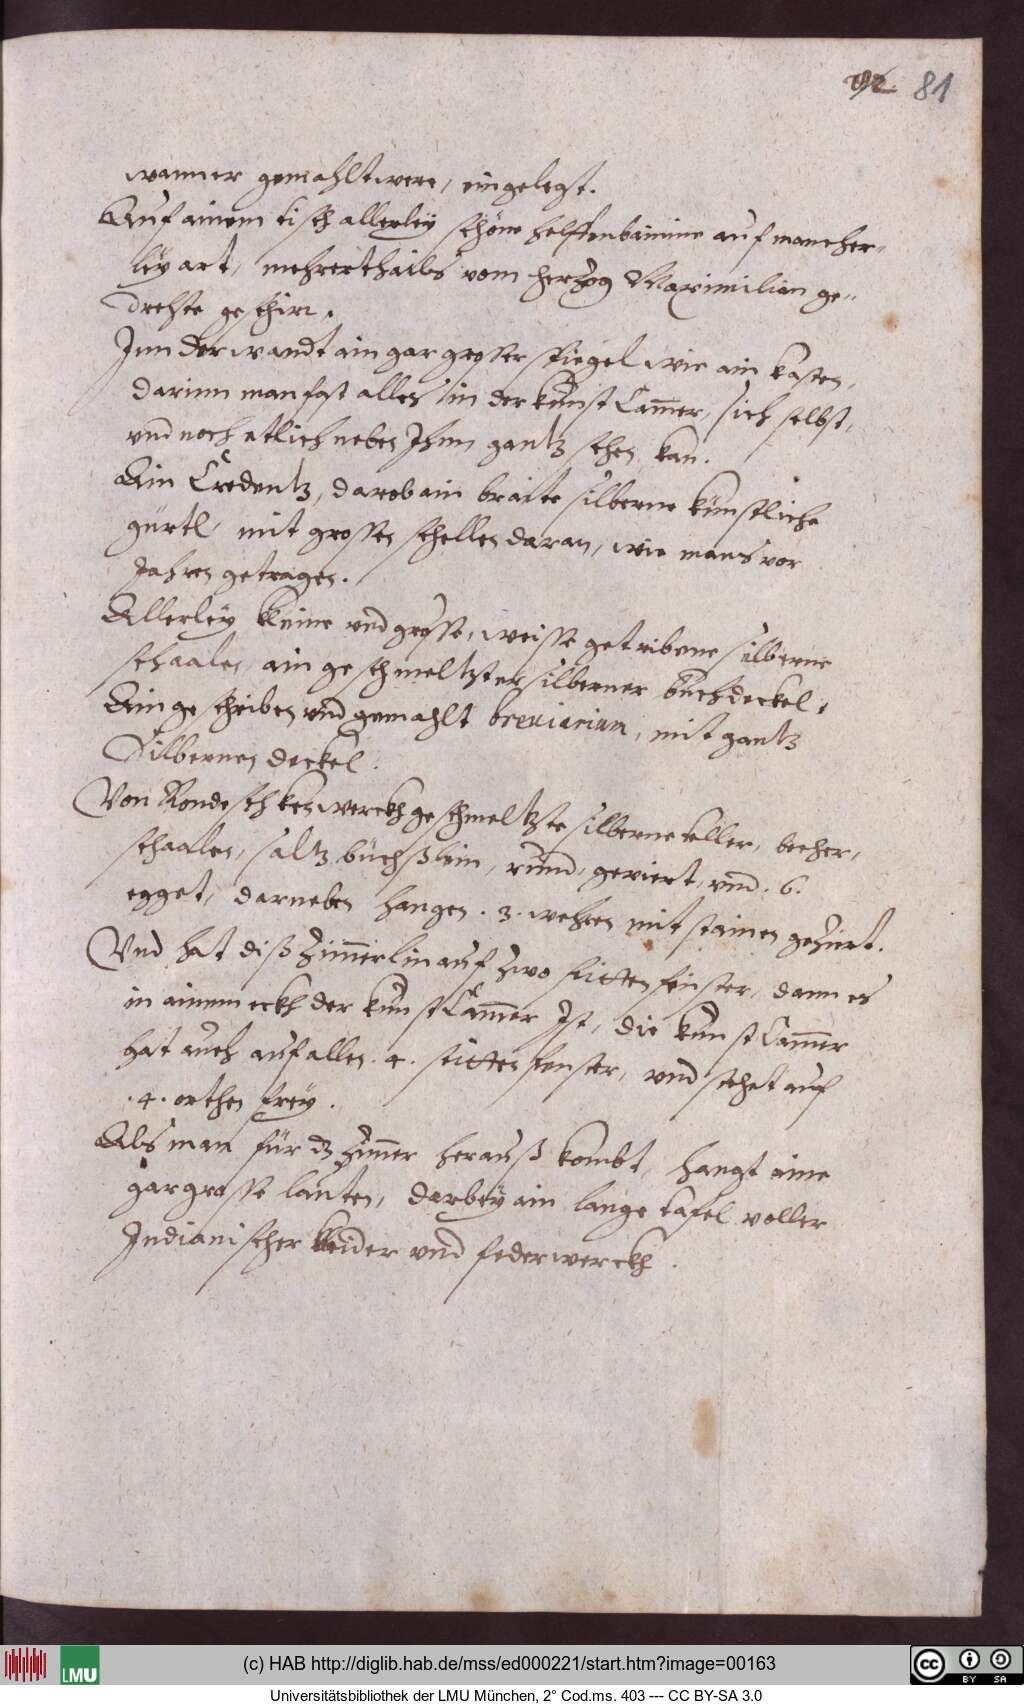 81
wann er gemahlt were, eingelegt.
Auf ainem tisch allerley schöne helffenbainine auf mancher-
ley art, mehrerthails vom herzog Maximilian ge-
drehte geschirr.
Inn der wandt ain gar grosser spiegel wie ain kasten,
darinn man fast alles in der kunst Cam̄er, sich selbst,
vnd noch etlich neben Ihm gantz sehen kan.
Ain Credentz, darob ain braite silberne künstliche
gürtl, mit grossen schellen daran, wie mans vor
Jahren getragen.
Allerley kleine vnd grosse, weisse getribene silberne
schaalen, ain geschmeltzter silberner buchdeckel,
Ain geschriben vnd gemahlt breuiarium, mit gantz
Silbernen deckel.
Von geschmeltzte silberne teller, becher,
schaalen, saltz büchßlein, rund, geviert, vnd .6.
egget, darneben hangen .3. wehren mit stainen geziert.
Vnd hat diß zim̄erlin auf zwo seitten fenster, dann es
in ainem eckh der kunst Cam̄er Ist, die kunst Cam̄er
hat auch auf allen .4. seitten fenster, vnd stehet auf
.4. orthen frey.
Als man für dz zim̄er herauß kombt, hangt aine
gar grosse lauten, darbey ain lange tafel voller
Indianischer kleider vnd federwerckh.
LMU
(c) HAB http://diglib.hab.de/mss/ed000221/start.htm?image=00163
Universitätsbibliothek der LMU München, 2° Cod.ms. 403 --- CC BY-SA 3.0
cc BY SA